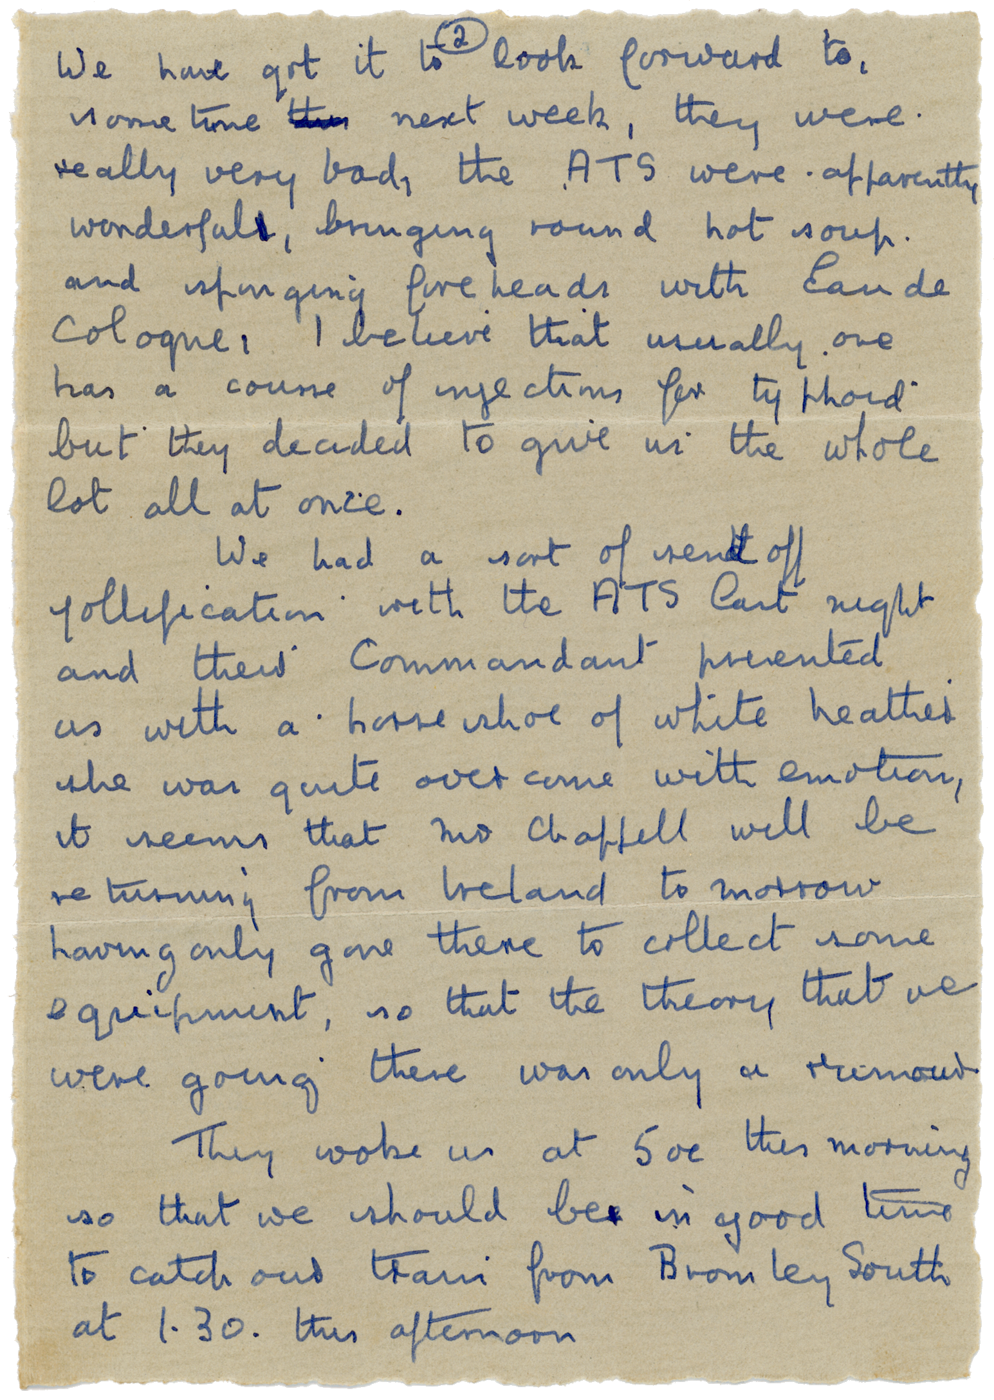 2
We have got it to look forward to,
some time this next week, they were
really very bad, the ATS were apparently
wonderful, bringing round hot soup.
and sponging foreheads with Eau de
Cologne, I believe that usually one
has a course of injections for typhoid
but they decided to give us the whole
lot all at once.
We had a sort of send off
jollification with the ATS last night
and their Commandant presented
us with a horse shoe of white heather
she was quite over come with emotion,
it seems that Mr Chappell will be
returning from Ireland to morrow
having only gone there to collect some
equipment, so that the theory that we
were going there was only a rumour
They woke us at 5 oc this morning
so that we should be in good time
to catch our train from Bromley South
at 1.30. this afternoon